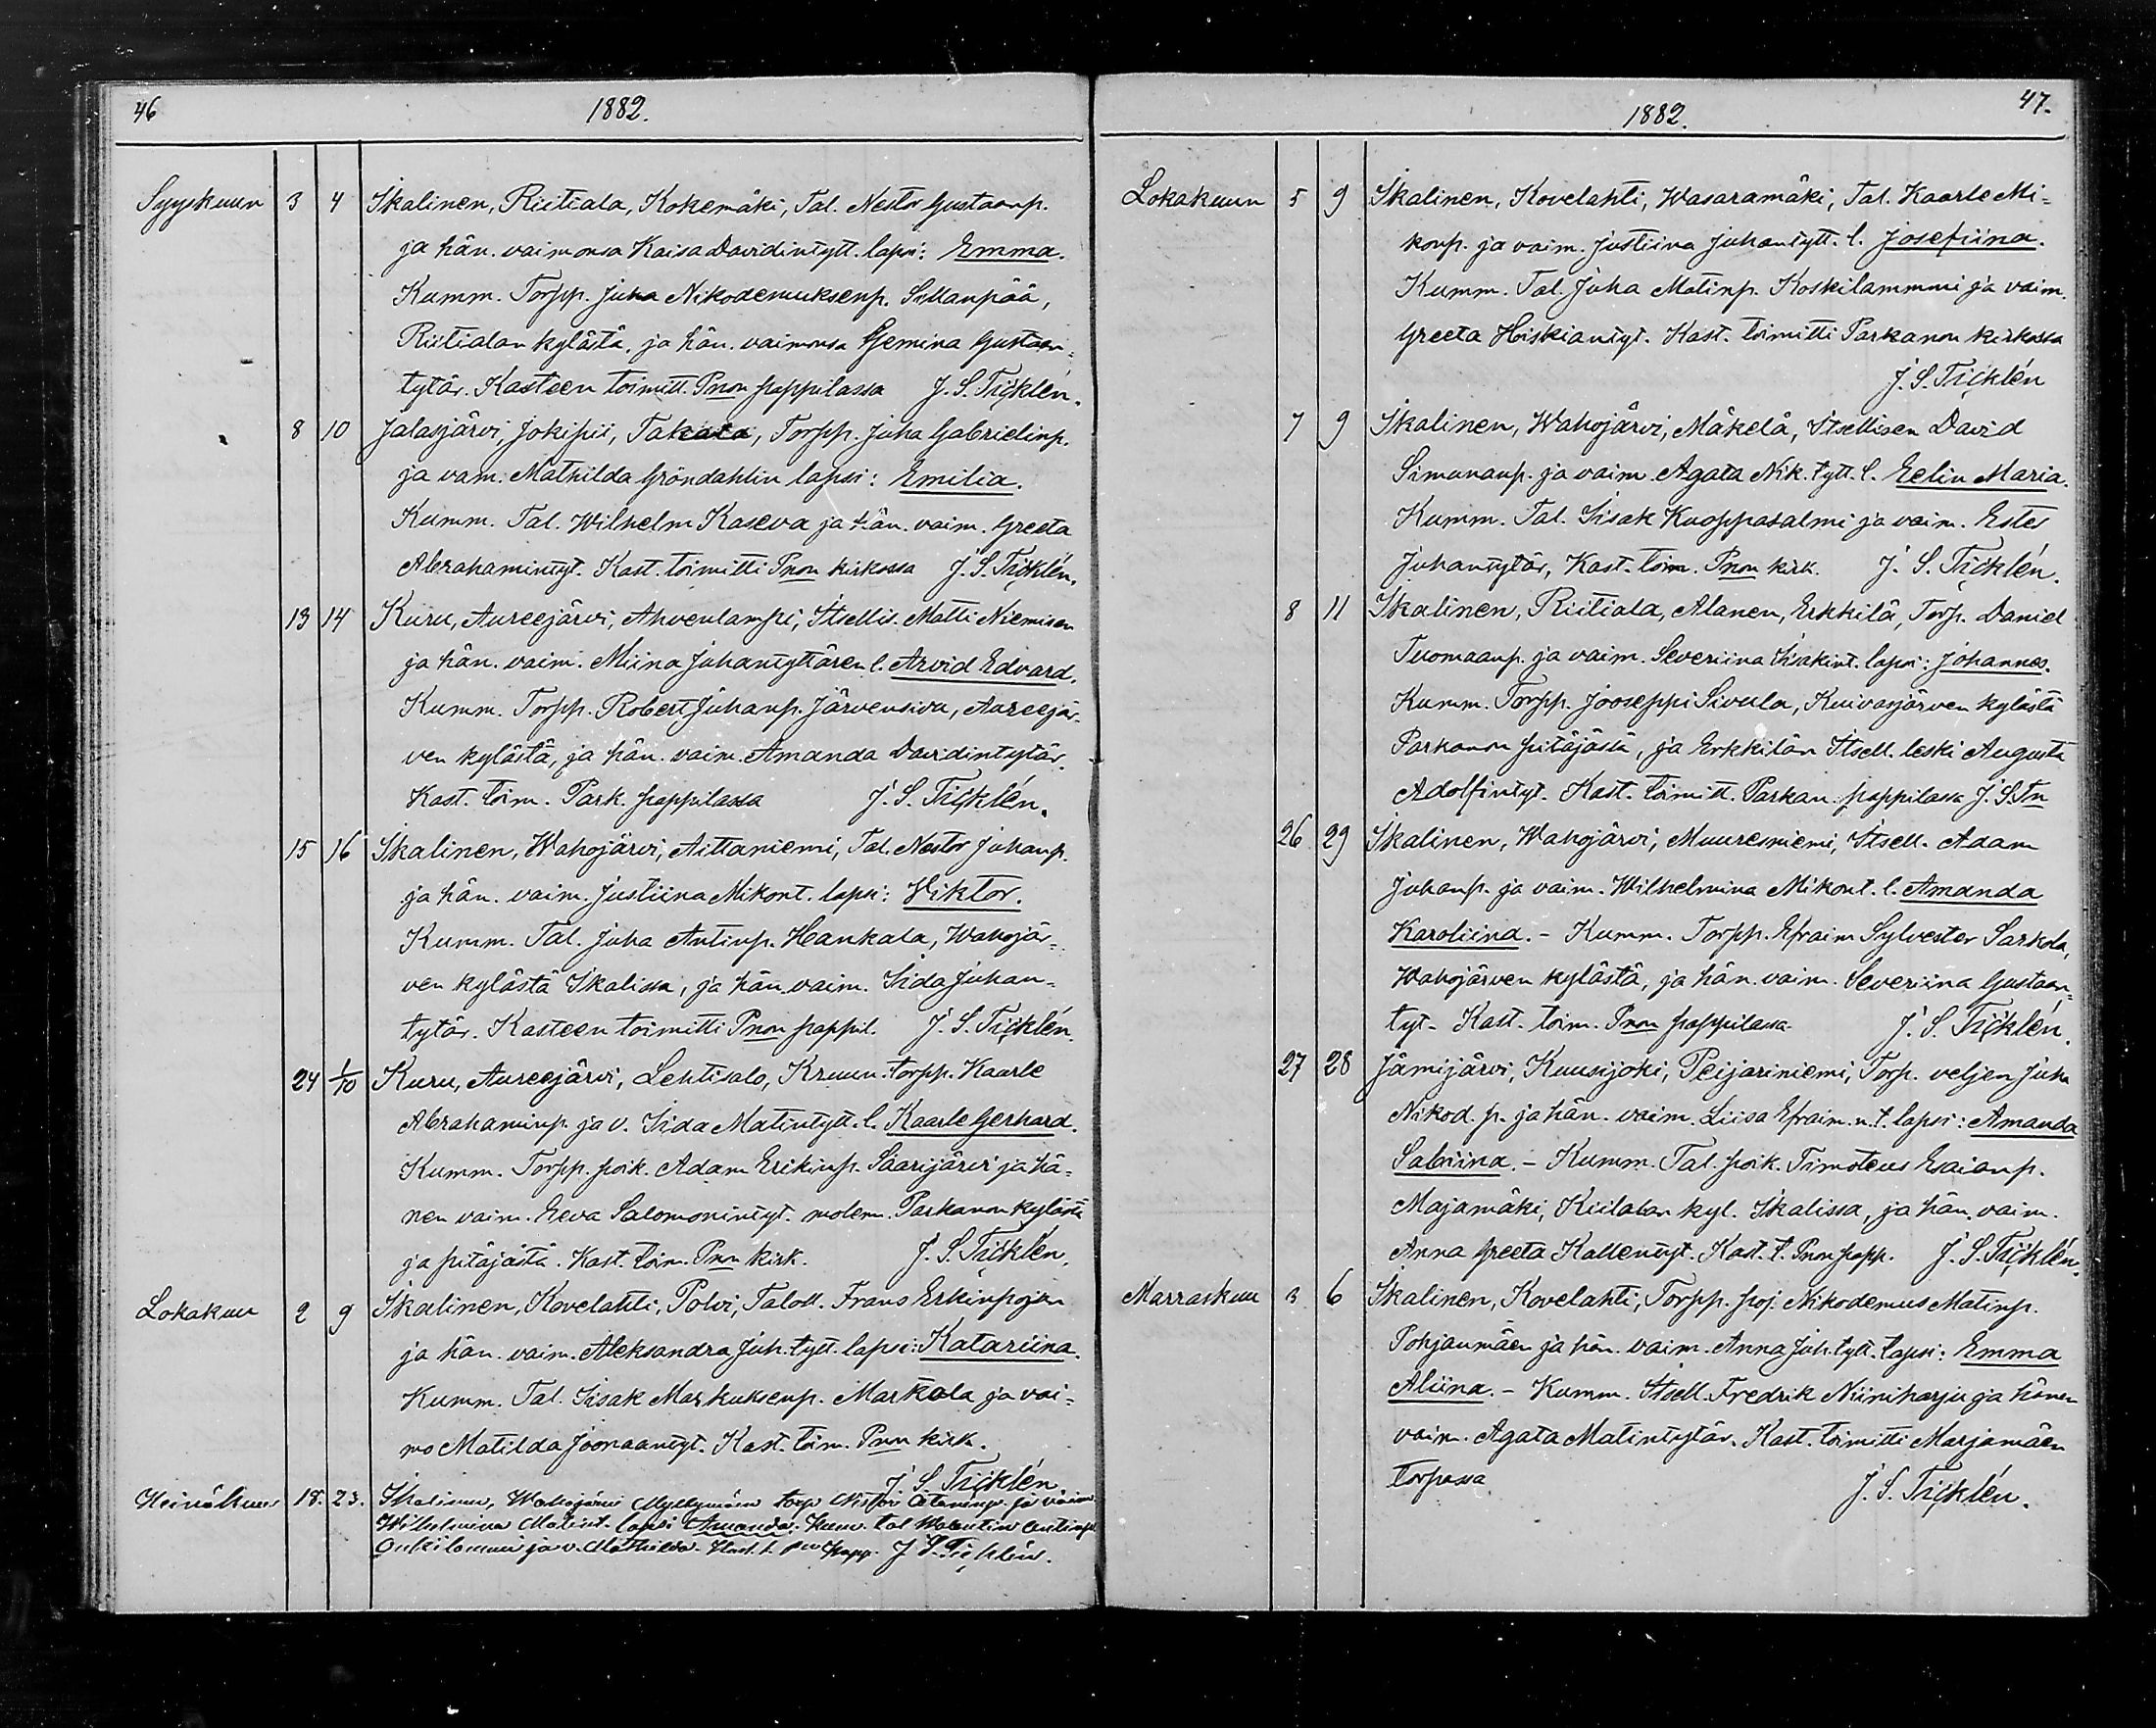 46
1882.
Syyskuun 3 4 Ikalinen, Riitiala, Kokemäki, Tal. Nestor Gustaanp.
ja hän. vaimonsa Kaisa Davidintytt. lapsi: Emma.
Kumm. Torpp. Juha Nikodemuksenp. Sillanpää,
Riitialan kylästä, ja hän. vaimonsa Gemina Gustaan-
tytär. Kasteen toimitt. Pnon pappilassa J. S. Ticklén.
8 10 Jalasjärvi, Jokipii, Takala, Torpp. Juha Gabrielinp.
ja vaim. Mathilda Gröndahlin lapsi: Emilia.
Kumm. Tal. Wilhelm Kaseva ja hän. vaim. Greeta
Abrahamintyt. Kast. toimitti Pnon kirkossa J. S. Ticklén.
13 14 Kuru, Aureejärvi, Ahvenlampi, Itsellis. Matti Niemisen
ja hän. vaim. Miina Juhantyttären l. Arvid Edvard.
Kumm. Torpp. Robert Juhanp. Järvensivu, Aureejär-
ven kylästä, ja hän. vaim. Amanda Davidintytär.
Kast. toim. Park. pappilassa J. S. Ticklén.
15 16 Ikalinen, Wahojärvi, Aittaniemi, Tal. Nestor Juhanp.
ja hän. vaim. Justiina Mikont. lapsi: Viktor.
Kumm. Tal. Juha Antinp. Hankala, Wahojär-
ven kylästä Ikalissa, ja hän. vaim. Iida Juhan-
tytär. Kasteen toimitti Pnon pappil. J. S. Ticklén.
24 1/10 Kuru, Aureejärvi, Lehtisalo, Kruun. torpp. Kaarle
Abrahaminp. ja v. Iida Matintytt. l. Kaarle Gerhard.
Kumm. Torpp. poik. Adam Erikinp. Saarijärvi ja hä-
nen vaim. Eeva Salomonintyt. molem. Parkanon kylästä
ja pitäjästä. Kast. toim. Pnon kirk. J. S. Ticklén.
Lokakuu 2 9 Ikalinen, Kovelahti, Polvi, Taloll. Frans Erkinpojan
ja hän. vaim. Aleksandra Juh. tytt. lapsi: Katariina.
Kumm. Tal. Iisak Markuksenp. Markola ja vai-
mo Matilda Joonaantyt. Kast. toim. Pnon kirk.
J. S. Ticklén
Heinäkuu 18. 23. Ikalinen, Wahojärvi Myllymäen torp. Nestori ja vaim.
Wilhelmiina Matint. lapsi Amanda. Kumm. tal Walentin Antinp.
ja v. Mathilda. Kast. t. pappi. J. S. Ticklén.
47.
1882.
Lokakuun 5 9 Ikalinen, Kovelahti, Wasaramäki, Tal. Kaarle Mi-
konp. ja vaim. Justiina Juhantytt. l. Josefiina.
Kumm. Tal. Juha Matinp. Koskilammmi ja vaim.
Greeta Hiskiantyt. Kast. toimitti Parkanon kirkossa
J. S. Ticklén
7 9 Ikalinen, Wahojärvi, Mäkelä, Itsellisen David
Simunanp. ja vaim. Agata Nik. tytt. l. Eelin Maria.
Kumm. Tal. Iisak Kuoppasalmi ja vaim. Ester
Juhantytär, Kast. toim. Pnon kirk. J. S. Ticklén.
8 11 Ikalinen, Riitiala, Alanen, Erkkilä, Torp. Daniel
Tuomaanp. ja vaim. Severiina Iisakint. lapsi: Johannes.
Kumm. Torpp. Jooseppi Sivula, Kuivasjärven kylästä
Parkanon pitäjästä, ja Erkkilän Itsell. leski Augusta
Adolfintyt. Kast. toimitt. Parkan. pappilassa J. S. Tn
26 29 Ikalinen, Wahojärvi, Muuresniemi, Itsell. Adam
Juhanp. ja vaim. Wilhelmina Mikont. l. Amanda
Karoliina. - Kumm. Torpp. Efraim Sylvester Sarkola,
Wahojärven kylästä, ja hän. vaim. Severiina Gustaan-
tyt. Kast. toim. Pnon pappilassa. J. S. Ticklén.
27 28 Jämijärvi, Kuusijoki, Peijariniemi, Torp. veljen Juha
Nikod. p. ja hän. vaim. Liisa Efraim. n. t. lapsi: Amanda
Sabriina. - Kumm. Tal. poik. Timoteus Esaianp.
Majamäki, Kiilalan kyl. Ikalissa, ja hän. vaim.
Anna Greeta Kallentyt. Kast. t. Pnon papp. J. S. Ticklén.
Marraskuu 3 6 Ikalinen, Kovelahti, Torpp. poj. Nikodemus Matinp.
Pohjanmäen ja hän. vaim. Anna Juh. tytt. lapsi: Emma
Aliina. - Kumm. Itsell. Fredrik Niiniharju ja hänen
vaim. Agata Matintytär. Kast. toimitti Marjamäen
torpassa J. S. Ticklén.